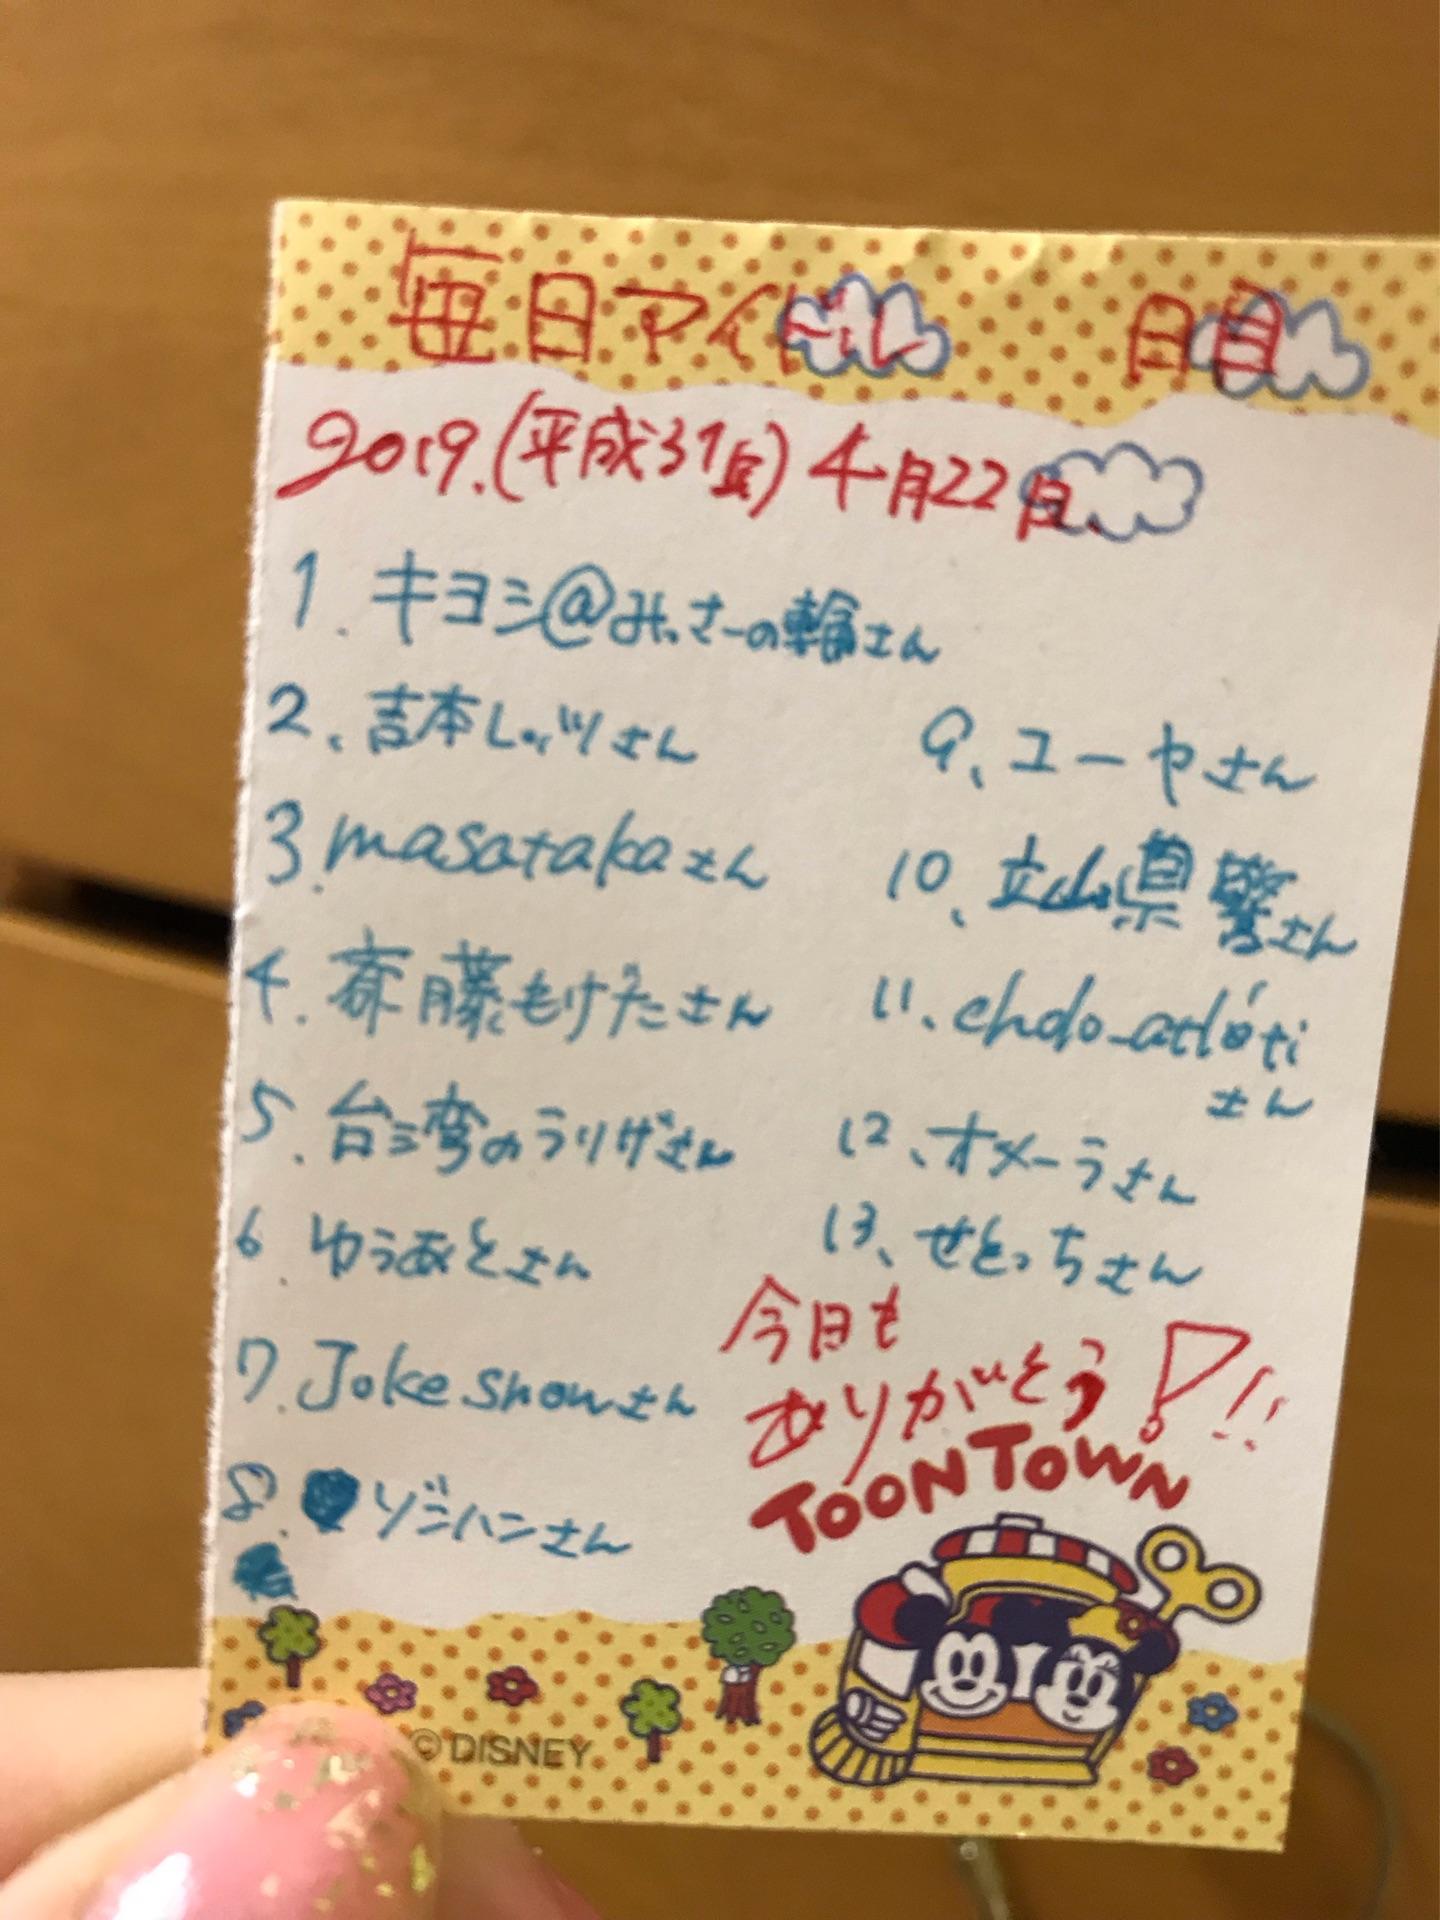 毎日アイドル 日目
2019.(平成31年)4月22日、
1.キヨシ@みっさーの輪さん
2、吉本しょッツさん
3.masatakaさん
4.斎藤もげたさん
5.台湾のラリザさん
6.ゆうあとさん
7.Joke snowさん
8.ソジハンさん
9、ユーヤさん
10、立山県警さん
11、chdo_atlóti
さん
12、オメーラさん
13、せとっちさん
今日も
ありがとう!!!
TOONTOWN
© DISNEY